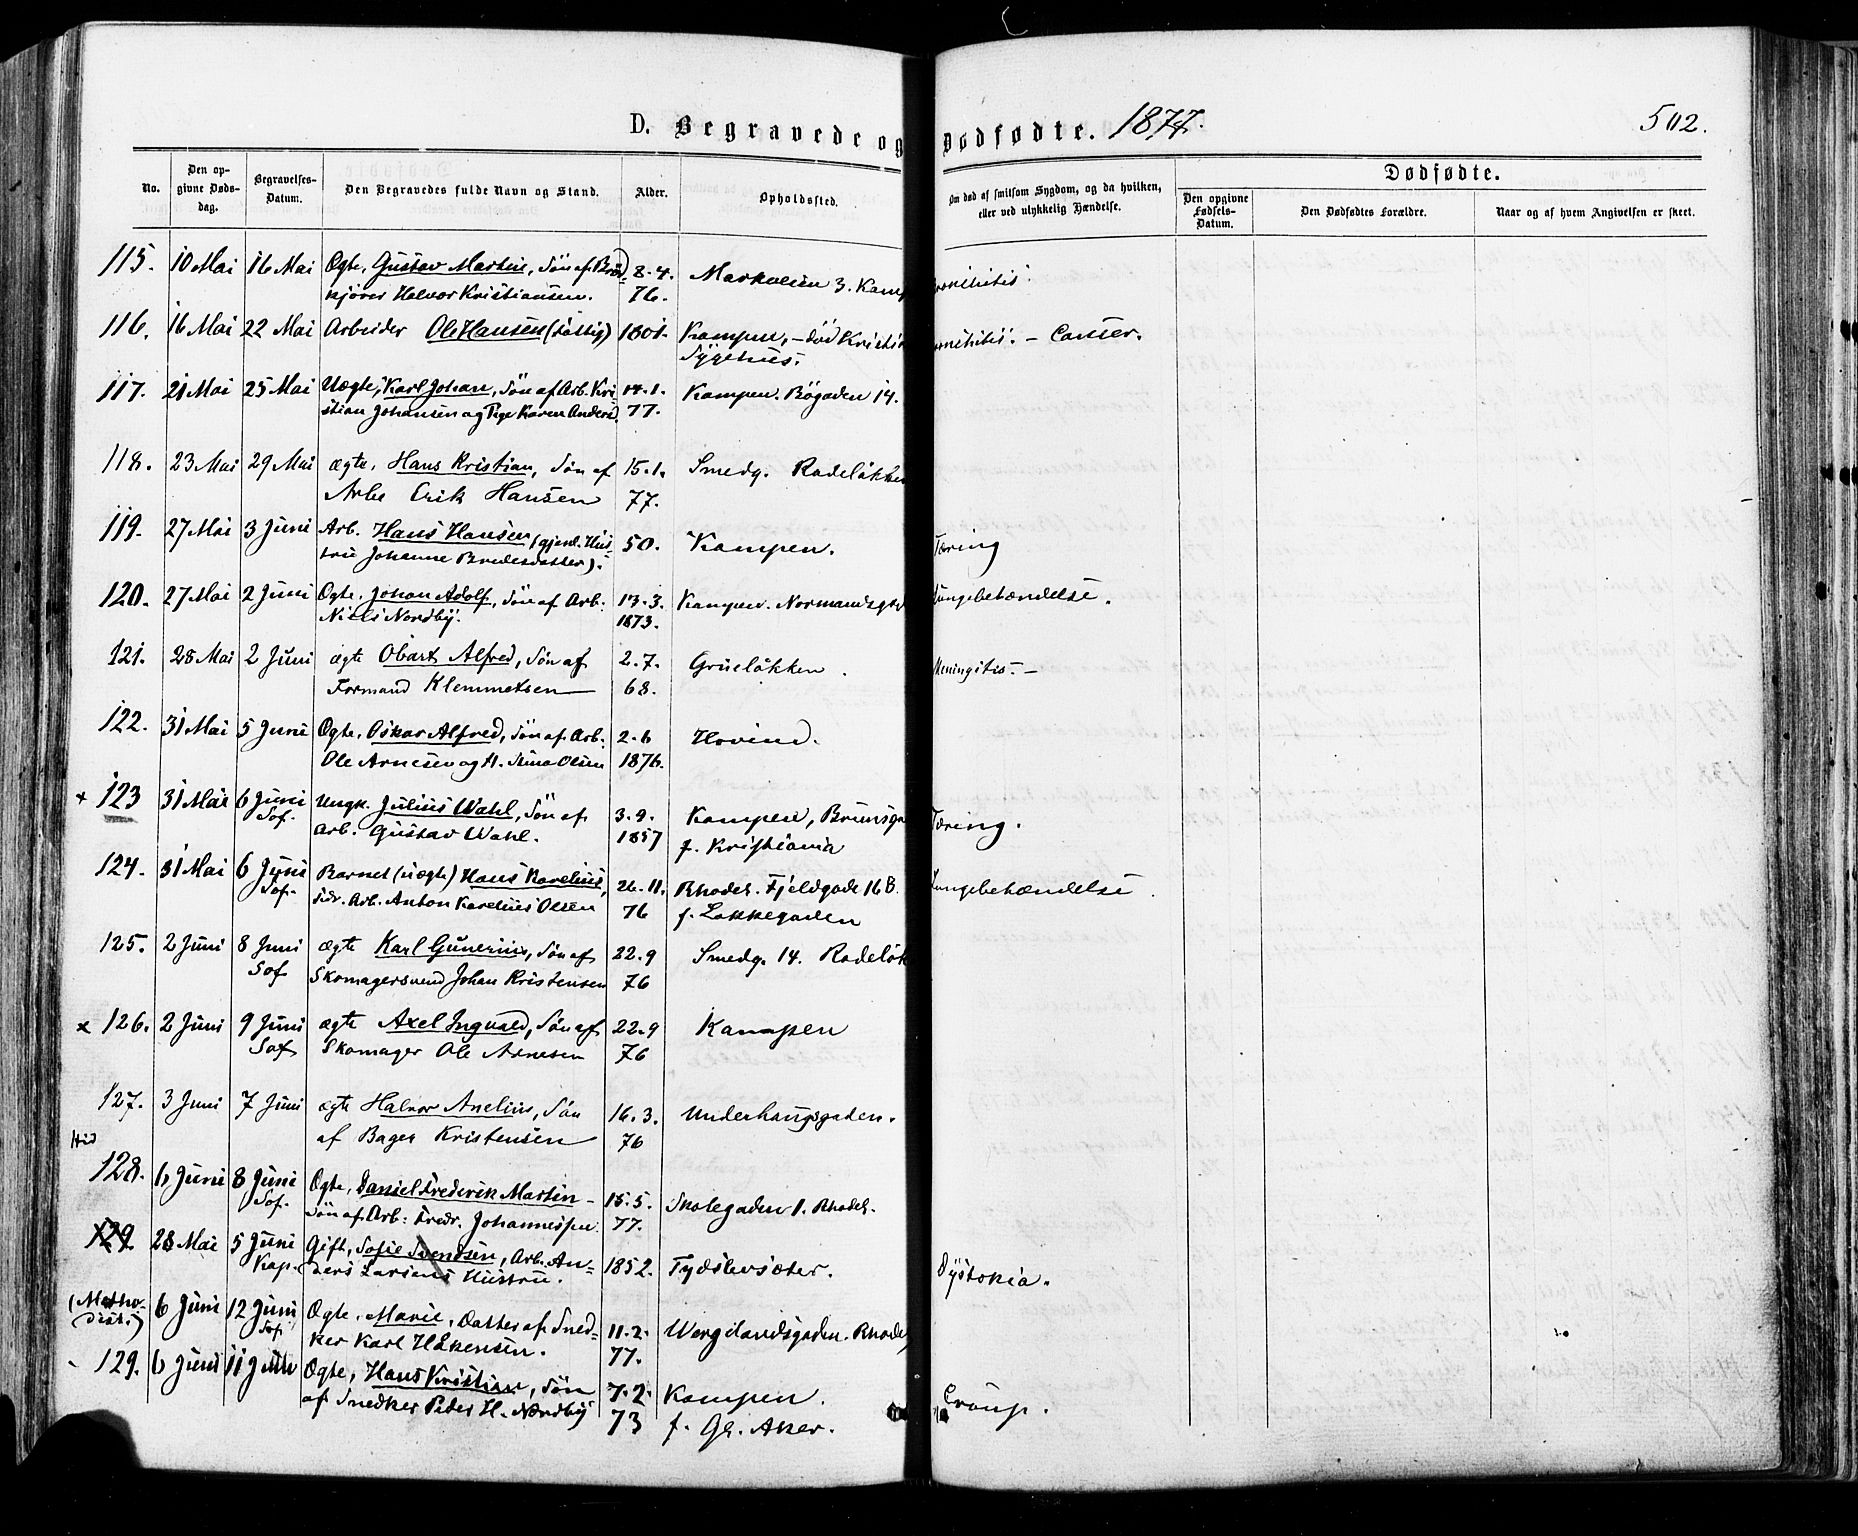 D. Begravede og Dødfødte. 1877. 502.
No. Den opgivne Døds-dag. Begravelses-Datum. Den Begravedes fulde Navn og Stand. Alder. Opholdssted. Om død af smitsom Sygdom, og da hvilken, eller ved ulykkelig Hændelse. Dødfødte.
Den opgivne Fødsels-Datum. Den Dødfødtes Forældre. Naar og af hvem Angivelsen er skeet.
115. 10 Mai 16 Mai Ægte, Gustav Martin, Søn af Bród- 8-4.
kjører Halvor Kristiansen. 76.
116. 16 Mai 22 Mai Arbeider Ole Hansen (fattig) 1801. Kampen, – død Kristia – Cancer.
Sygehus.
117. 21 Mai 25 Mai Uægte, Karl Johan, Søn af Arb. Kri 14-1. Kampen. Bögaden 14.
stian Johansen og Pige Karen Anders. 77.
118. 23 Mai 29 Mai ægte, Hans Kristian, Søn af 15.1. Smedg. Rodeløkken
Arbr Erik Hansen 77.
119. 27 Mai 3 Juni Arb. Hans Hansen (gjenl. Hus- 50. Kampen. Tæring
tru Johanne Bredesdatter).
120. 27 Mai 2 Juni Ægte, Johan Adolf, Søn af Arb. 13-3. Kampen. Normandsgd Lungebetændelse.
Niels Nordby. 1873.
121. 28 Mai 2 Juni ægte Obart Alfred, Søn af 2.7. Grüneløkken. Meningitis. –
Formand Klemmetsen 68.
122. 31 Mai 5 Juni Ægte, Oskar Alfred, Søn af Arb. 2-6 Hovind.
Ole Arnesen og H. Stina Olsen 1876.
x 123 31 Mai 6 Juni Ungk. Julius Wahl, Søn af 3-9. Kampen, Brunsga Tæring.
Sof. Arb. Gustav Wahl. 1857 f. Kristiania
124. 31 Mai 6 Juni Barnet (uægte) Hans Karelius, 26.11. Rhodel. Fjeldgade 16 B. Lungebetændelse.
Sof. Fdr. Arb. Anton Karelius Olsen 76 f. Lakkegaden
125. 2 Juni 8 Juni ægte Karl Gunerius, Søn af 22.9 Smedg. 14. Rodeløk
Sof Skomagersvend Johan Kristensen 76
x 126. 2 Juni 9 Juni ægte Axel Ingvald, Søn af 22.9 Kampen
Sof Skomager Ole Arnesen 76
127. 3 Juni 7 Juni ægte Halvor Anelius, Søn 16.3. Underhaugsgaden.
af Bager Kristensen 76
128. 6 Juni 8 Juni Ægte, Daniel Frederik Martin – 15.5. Skolegaden 1. Rhodel.
Sof. Søn af Arb. Fredr. Johannessen 77.
129. 28 Mai 5 Juni Gift, Sofie Svendsen, Arb. An- 1852. Tydslevsæter. Dystokia.
Kap. ders Larsens Hustru.
(Metho- 6 Juni 12 Juni Ægte, Marie, Datter af Sned- 11-2- Wergelandsgaden. Rhodel
dist.) Sof. ker Karl Håkensen. 77.
129. 6 Juni 11 Juni Ægte, Hans Kristian, Søn 7-2- Kampen. Croup.
af Snedker Peter H. Nordby 73 f. Gl. Aker.